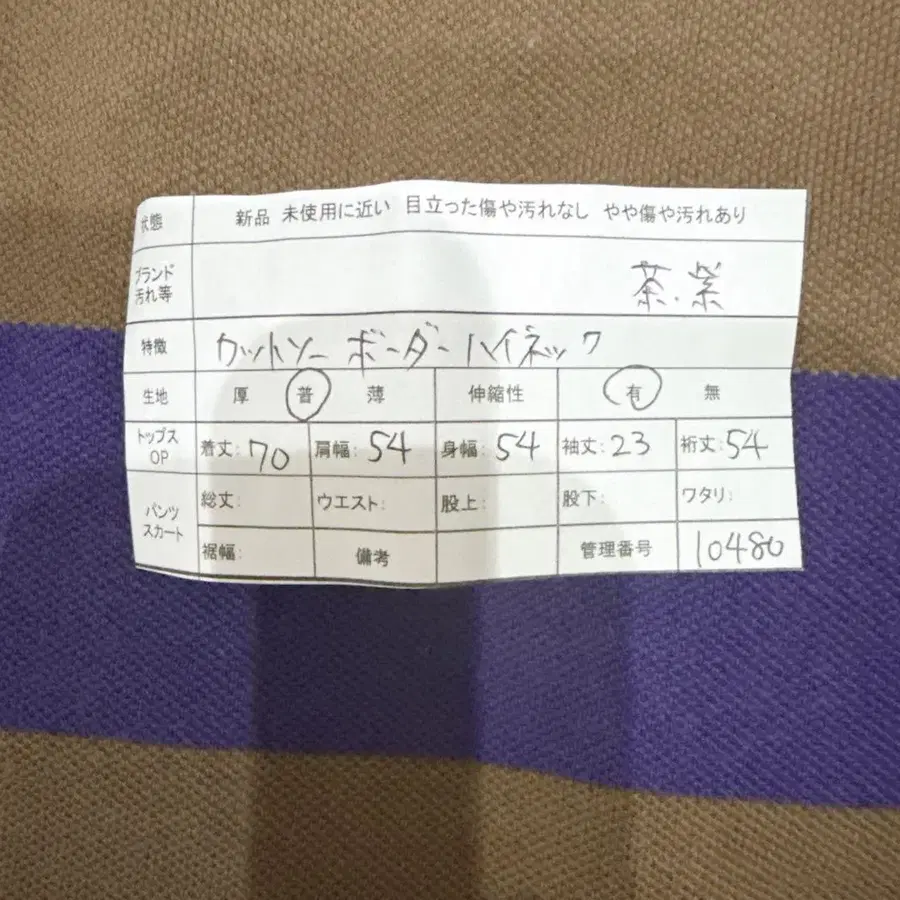 状態 新品 未使用に近い 目立った傷や汚れなし やや傷や汚れあり
ブランド
汚れ等 茶・紫
特徴 カットソー ボーダー ハイネック
生地 厚 普 薄 伸縮性 有 無
トップス
OP 着丈: 70 肩幅: 54 身幅: 54 袖丈: 23 裄丈: 54
パンツ
スカート 総丈: ウエスト: 股上: 股下: ワタリ:
裾幅: 備考 管理番号 10480